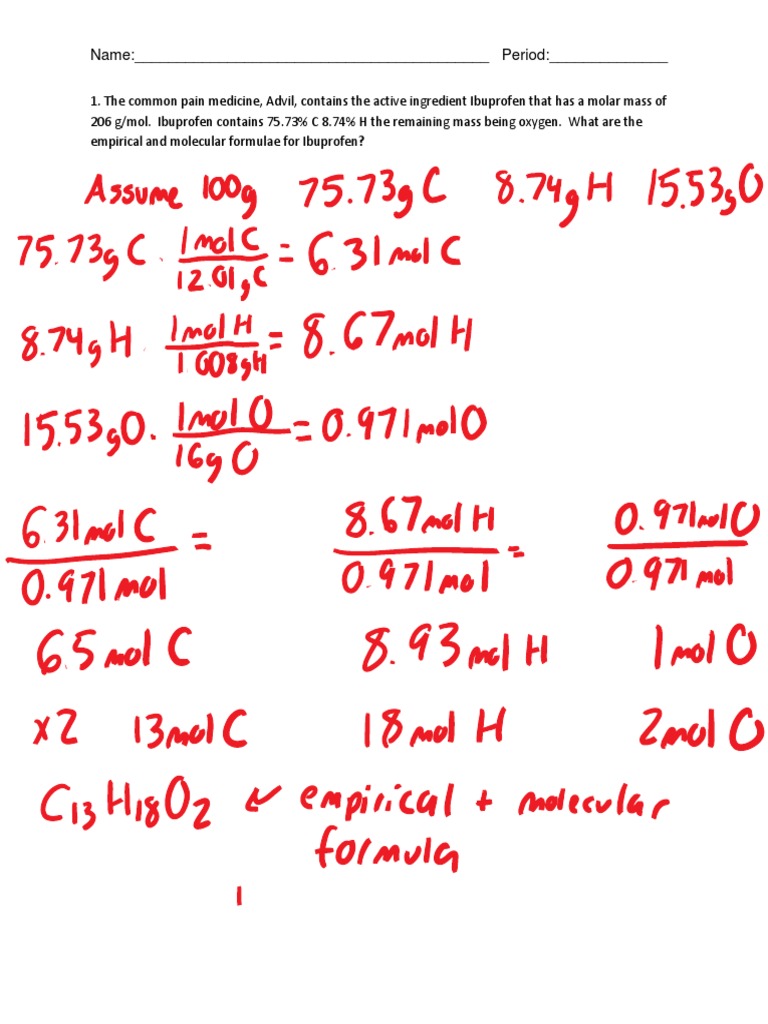 Name:____________________________________________ Period:______________
1. The common pain medicine, Advil, contains the active ingredient Ibuprofen that has a molar mass of
206 g/mol. Ibuprofen contains 75.73% C 8.74% H the remaining mass being oxygen. What are the
empirical and molecular formulae for Ibuprofen?
Assume 100g 75.73g C 8.74g H 15.53g O
75.73g C · 1 mol C / 12.01g C = 6.31 mol C
8.74g H · 1 mol H / 1.008g H = 8.67 mol H
15.53g O · 1 mol O / 16g O = 0.971 mol O
6.31 mol C / 0.971 mol = 8.67 mol H / 0.971 mol = 0.971 mol O / 0.971 mol
6.5 mol C 8.93 mol H 1 mol O
x2 13 mol C 18 mol H 2 mol O
C₁₃H₁₈O₂ ↙ empirical + molecular
formula